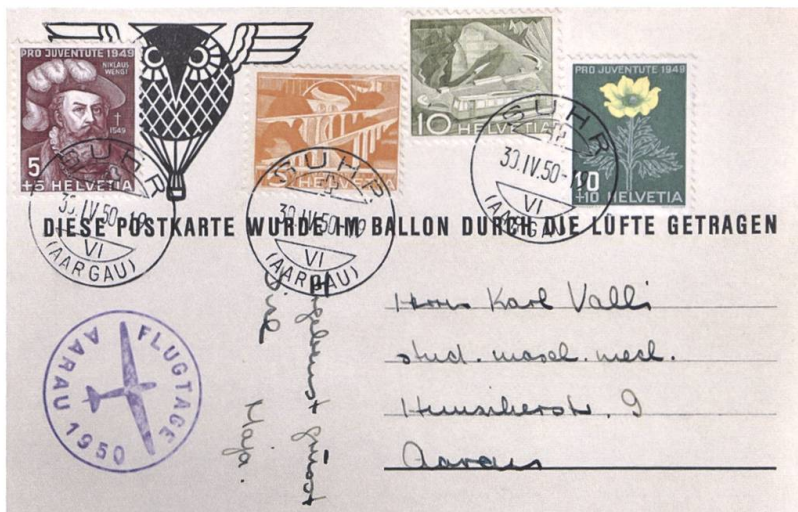 PRO JUVENTUTE 1949
NIKLAUS
WENGI
†
1549
5
+5 HELVETIA
5 HELVETIA
10 HELVETIA
PRO JUVENTUTE 1949
10
+10 HELVETIA
SUHR
30.IV.50-19
VI
(AARGAU)
SUHR
30.IV.50-19
VI
(AARGAU)
SUHR
30.IV.50-19
VI
(AARGAU)
DIESE POSTKARTE WURDE IM BALLON DURCH DIE LÜFTE GETRAGEN
FLUGTAGE
AARAU 1950
grüsst
Maja.
Herrn Karl Valli
stud. masch. mech.
9
Aarau